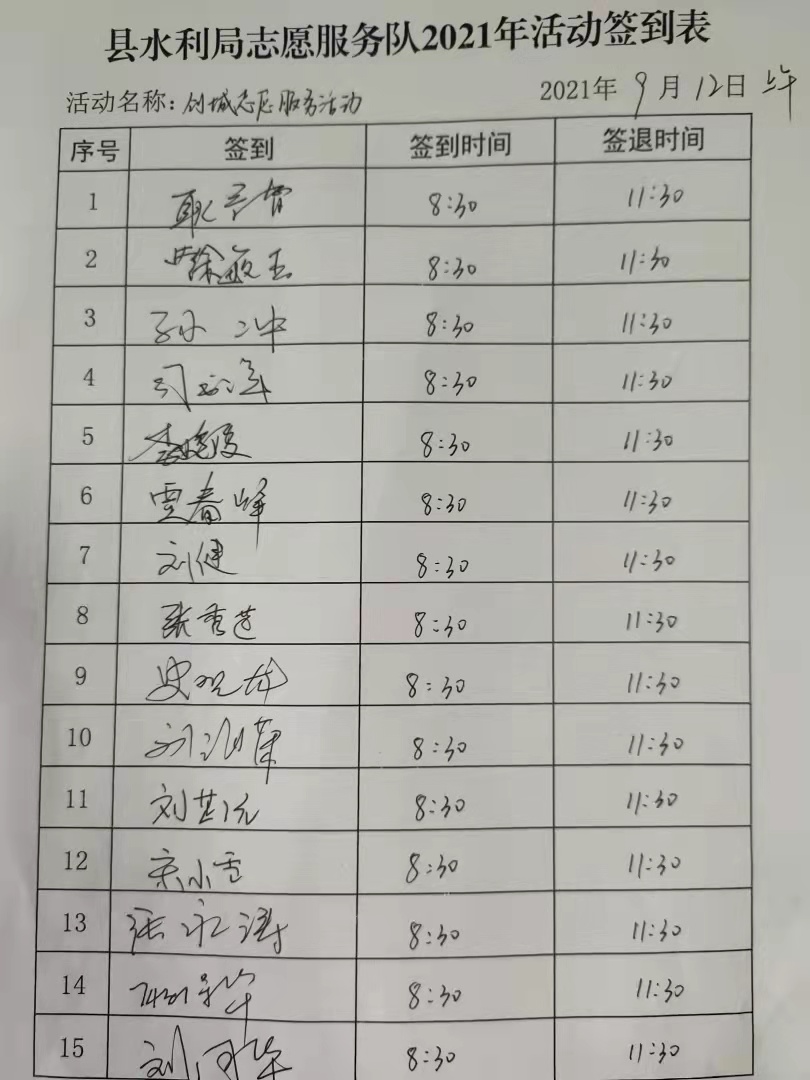 县水利局志愿服务队2021年活动签到表
活动名称：创城志愿服务活动 2021年9月12日 上午
序号 签到 签到时间 签退时间
1 8:30 11:30
2 8:30 11:30
3 孙 冲 8:30 11:30
4 司 8:30 11:30
5 李晓俊 8:30 11:30
6 贾春峰 8:30 11:30
7 刘健 8:30 11:30
8 张秀莲 8:30 11:30
9 8:30 11:30
10 刘 8:30 11:30
11 刘 8:30 11:30
12 宋小雪 8:30 11:30
13 张永涛 8:30 11:30
14 8:30 11:30
15 刘 8:30 11:30